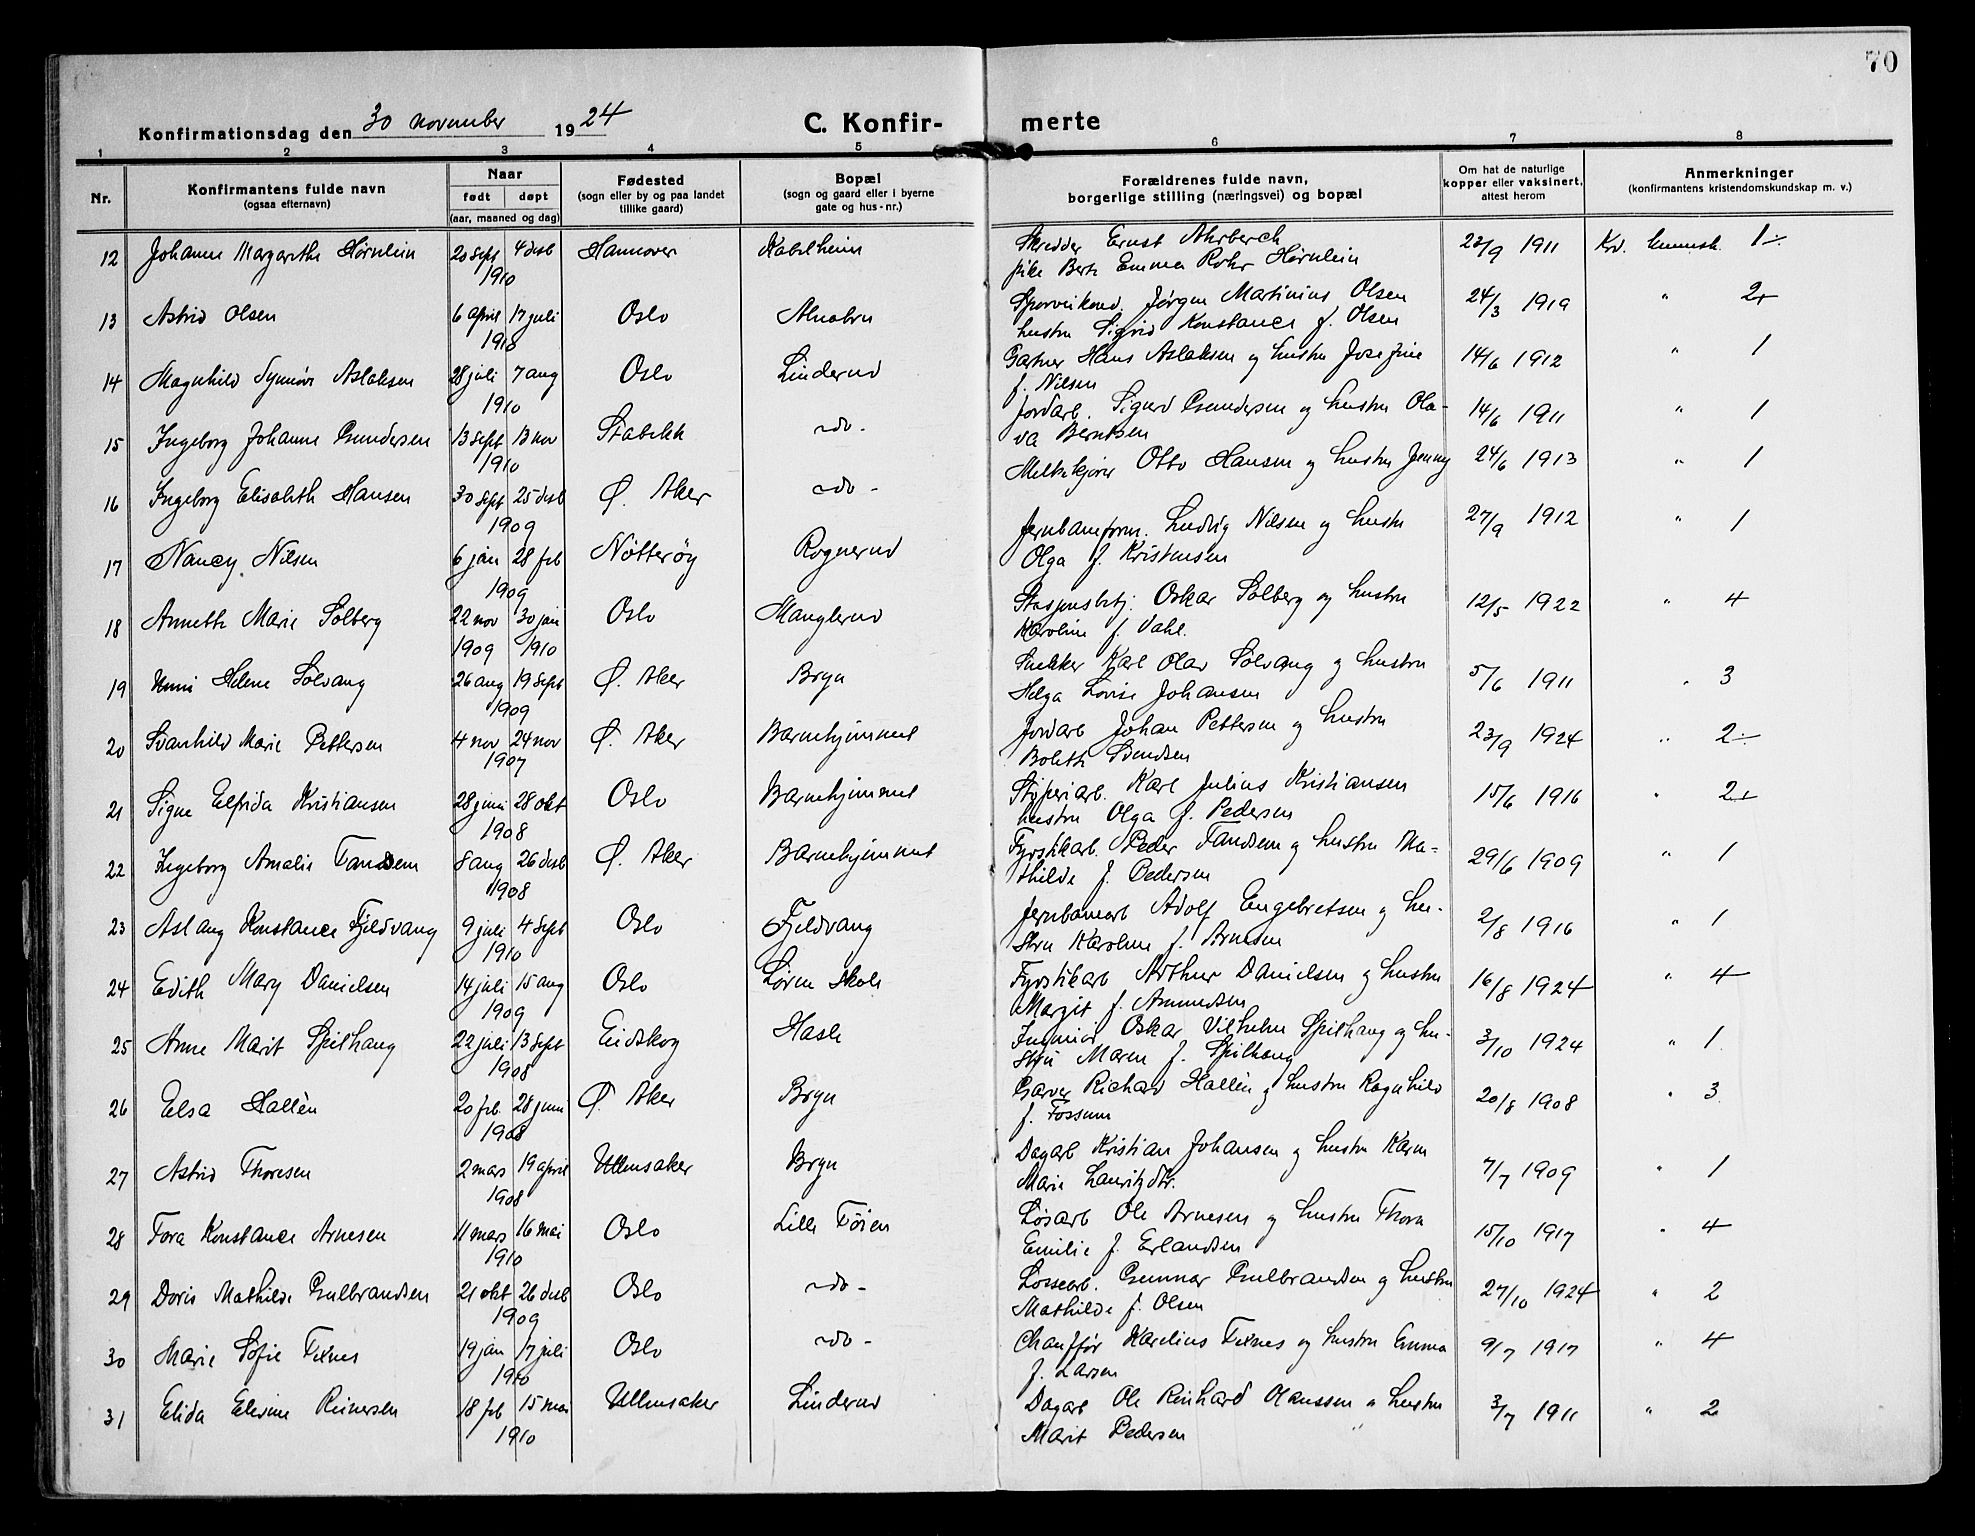 70
Konfirmationsdag den 30 november 1924
C. Konfir- merte
1 2 3 4 5 6 7 8
Nr.
Konfirmantens fulde navn
(ogsaa efternavn)
Naar
født døpt
(aar, maaned og dag)
Fødested
(sogn eller by og paa landet
tillike gaard)
Bopæl
(sogn og gaard eller i byerne
gate og hus-nr.)
Forældrenes fulde navn,
borgerlige stilling (næringsvei) og bopæl
Om hat de naturlige
kopper eller vaksinert,
altest herom
Anmerkninger
(konfirmantens kristendomskundskap m. v.)
12 Johanne Margarethe Hørnlein 20 sept 4 desb Hannover Kabelheim Skredder Ernst 23/9 1911 Krd. kunnsk. 1÷
1910 pike Emma Rohr Hørnlein
13 Astrid Olsen 6 april 17 juli Oslo Alnabru Jørgen Martinius Olsen 24/3 1919 " 2+
1910 hustru Sigrid Konstance f. Olsen
14 Magnhild Synnøve Aslaksen 28 juli 7 aug Oslo Linderud Gartner Hans Aslaksen og hustru Josefine 14/6 1912 " 1
1910 f. Nilsen
15 Ingeborg Johanne Gundersen 13 sept 13 nov Stabekk -do- Jordarb. Sigurd Gundersen og hustru Ola- 14/6 1911 " 1
1910 va Berntsen
16 Ingeborg Elisabeth Hansen 30 sept 25 desb Ø. Aker -do- Melkekjører Otto Hansen og hustru Jenny 24/6 1913 " 1
1909
17 Nancy Nilsen 6 jan 28 feb Nøtterøy Rognerud Jernbaneform. Ludvig Nilsen og hustru 27/9 1912 " 1
1909 Olga f. Kristensen
18 Annette Marie Solberg 22 nov 30 jan Oslo Manglerud Stasjonsbetj. Oskar Solberg og hustru 12/5 1922 " 4
1909 1910 Karoline f. Dahl.
19 Unni Helene Solvang 26 aug 19 sept Ø. Aker Bryn Snekker Karl Olav Solvang og hustru 5/6 1911 " 3
1909 Helga Lovise Johansen
20 Svanhild Marie Pettersen 4 nov 24 nov Ø. Aker Barnehjemmet Jordarb Johan Pettersen og hustru 23/9 1924 " 2÷
1907 Bolette Svendsen
21 Signe Elfrida Kristiansen 28 juni 28 okt Oslo Barnehjemmet Støperiarb. Karl Julius Kristiansen 15/6 1916 " 2+
1908 hustru Olga f. Pedersen
22 Ingeborg Amalie Tandsem 8 aug 26 desb Ø. Aker Barnehjemmet Fyrstikarb. Peder Tandsem og hustru Ma- 29/6 1909 " 1
1908 thilde f. Pedersen
23 Aslaug Konstance Fjeldvang 9 juli 4 sept Oslo Fjeldvang Jernbanearb Adolf Engebretsen og hu- 2/8 1916 " 1
1910 stru Karoline f. Arnesen
24 Edith Mary Danielsen 14 juli 15 aug Oslo Løren skole Fyrstikarb Arthur Danielsen og hustru 16/8 1924 " 4
1909 Margit f. Amundsen
25 Anne Marit Spilhaug 22 juli 13 sept Eidskog Hasle Ingeniør Oskar Vilhelm Spilhaug og hu- 3/10 1924 " 1
1908 stru Maren f. Spilhaug
26 Elsa Hallèn 20 feb. 28 juni Ø. Aker Bryn Garver Richard Hallèn og hustru Ragnhild 20/8 1908 " 3
1908 f. Fossum
27 Astrid Thoresen 2 mars 19 april Ullensaker Bryn Dagarb Kristian Johansen og hustru Karen 7/7 1909 " 1
1908 Marie Lauritzdtr.
28 Tora Konstance Arnesen 11 mars 16 mai Oslo Lille Tøien Løsarb Ole Arnesen og hustru Thora 15/10 1917 " 4
1910 Emilie f. Erlandsen
29 Doris Mathilde Gulbrandsen 21 okt 26 desb Oslo -do- Lossearb. Gunnar Gulbrandsen og hustru 27/10 1924 " 2
1909 Mathilde f. Olsen
30 Marie Sofie Fixnes 19 jan 17 juli Oslo -do- Chauffør Karelius Fixnes og hustru Emma 9/7 1917 " 4
1910 f. Larsen
31 Elida Elevine Reinersen 18 feb 15 mai Ullensaker Linderud Dagarb Ole Reinhard Olaussen o hustru 3/7 1911 " 2
1910 Marit Pedersen